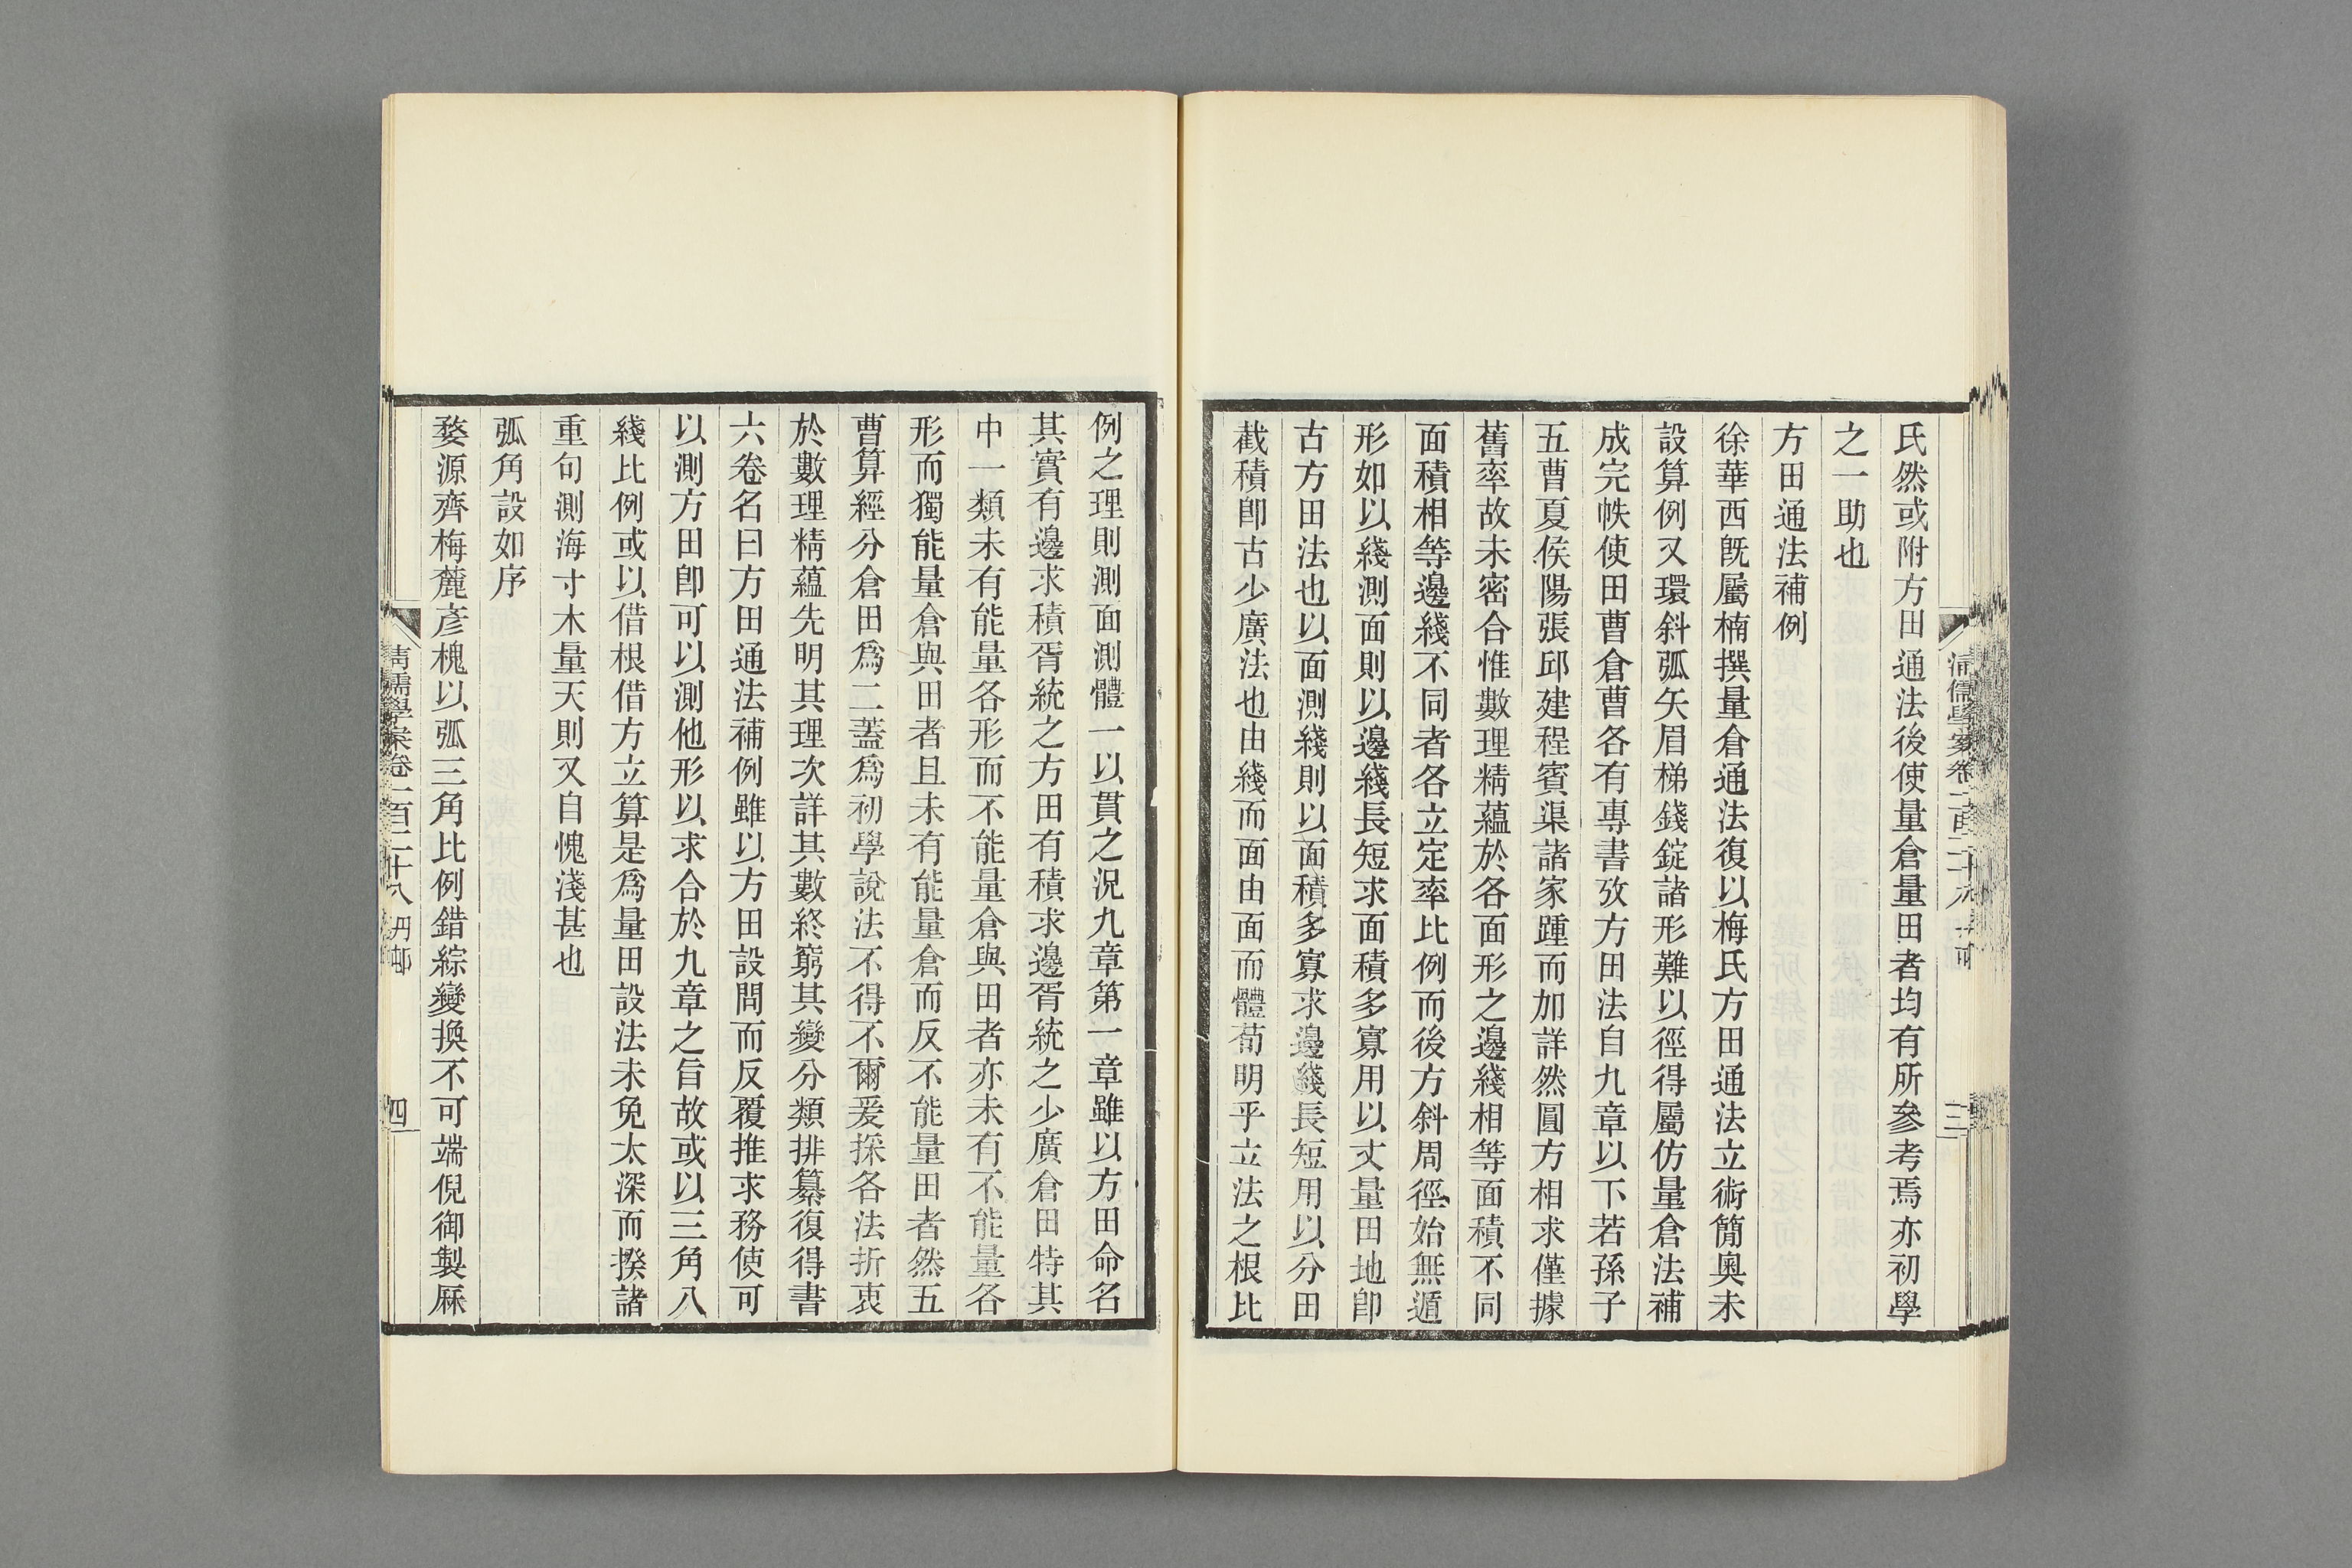 氏然或附方田通法後使量倉量田者均有所參考焉亦初學
之一助也
方田通法補例
徐華西旣屬楠撰量倉通法復以梅氏方田通法立術簡奧未
設算例又環斜弧矢眉梯錢錠諸形難以徑得屬仿量倉法補
成完帙使田曹倉曹各有專書攷方田法自九章以下若孫子
五曹夏侯陽張邱建程賓渠諸家踵而加詳然圓方相求僅據
舊率故未密合惟數理精蘊於各面形之邊綫相等面積不同
面積相等邊綫不同者各立定率比例而後方斜周徑始無遁
形如以綫測面則以邊綫長短求面積多寡用以丈量田地卽
古方田法也以面測綫則以面積多寡求邊綫長短用以分田
截積卽古少廣法也由綫而面由面而體苟明乎立法之根比
例之理則測面測體一以貫之況九章第一章雖以方田命名
其實有邊求積胥統之方田有積求邊胥統之少廣倉田特其
中一類未有能量各形而不能量倉與田者亦未有不能量各
形而獨能量倉與田者且未有能量倉而反不能量田者然五
曹算經分倉田爲二蓋爲初學說法不得不爾爰採各法折衷
於數理精蘊先明其理次詳其數終窮其變分類排纂復得書
六卷名曰方田通法補例雖以方田設問而反覆推求務使可
以測方田卽可以測他形以求合於九章之旨故或以三角八
綫比例或以借根借方立算是爲量田設法未免太深而揆諸
重句測海寸木量天則又自愧淺甚也
弧角設如序
婺源齊梅麓彥槐以弧三角比例錯綜變換不可端倪御製厤
清儒學案卷一百二十八 丹邨
四